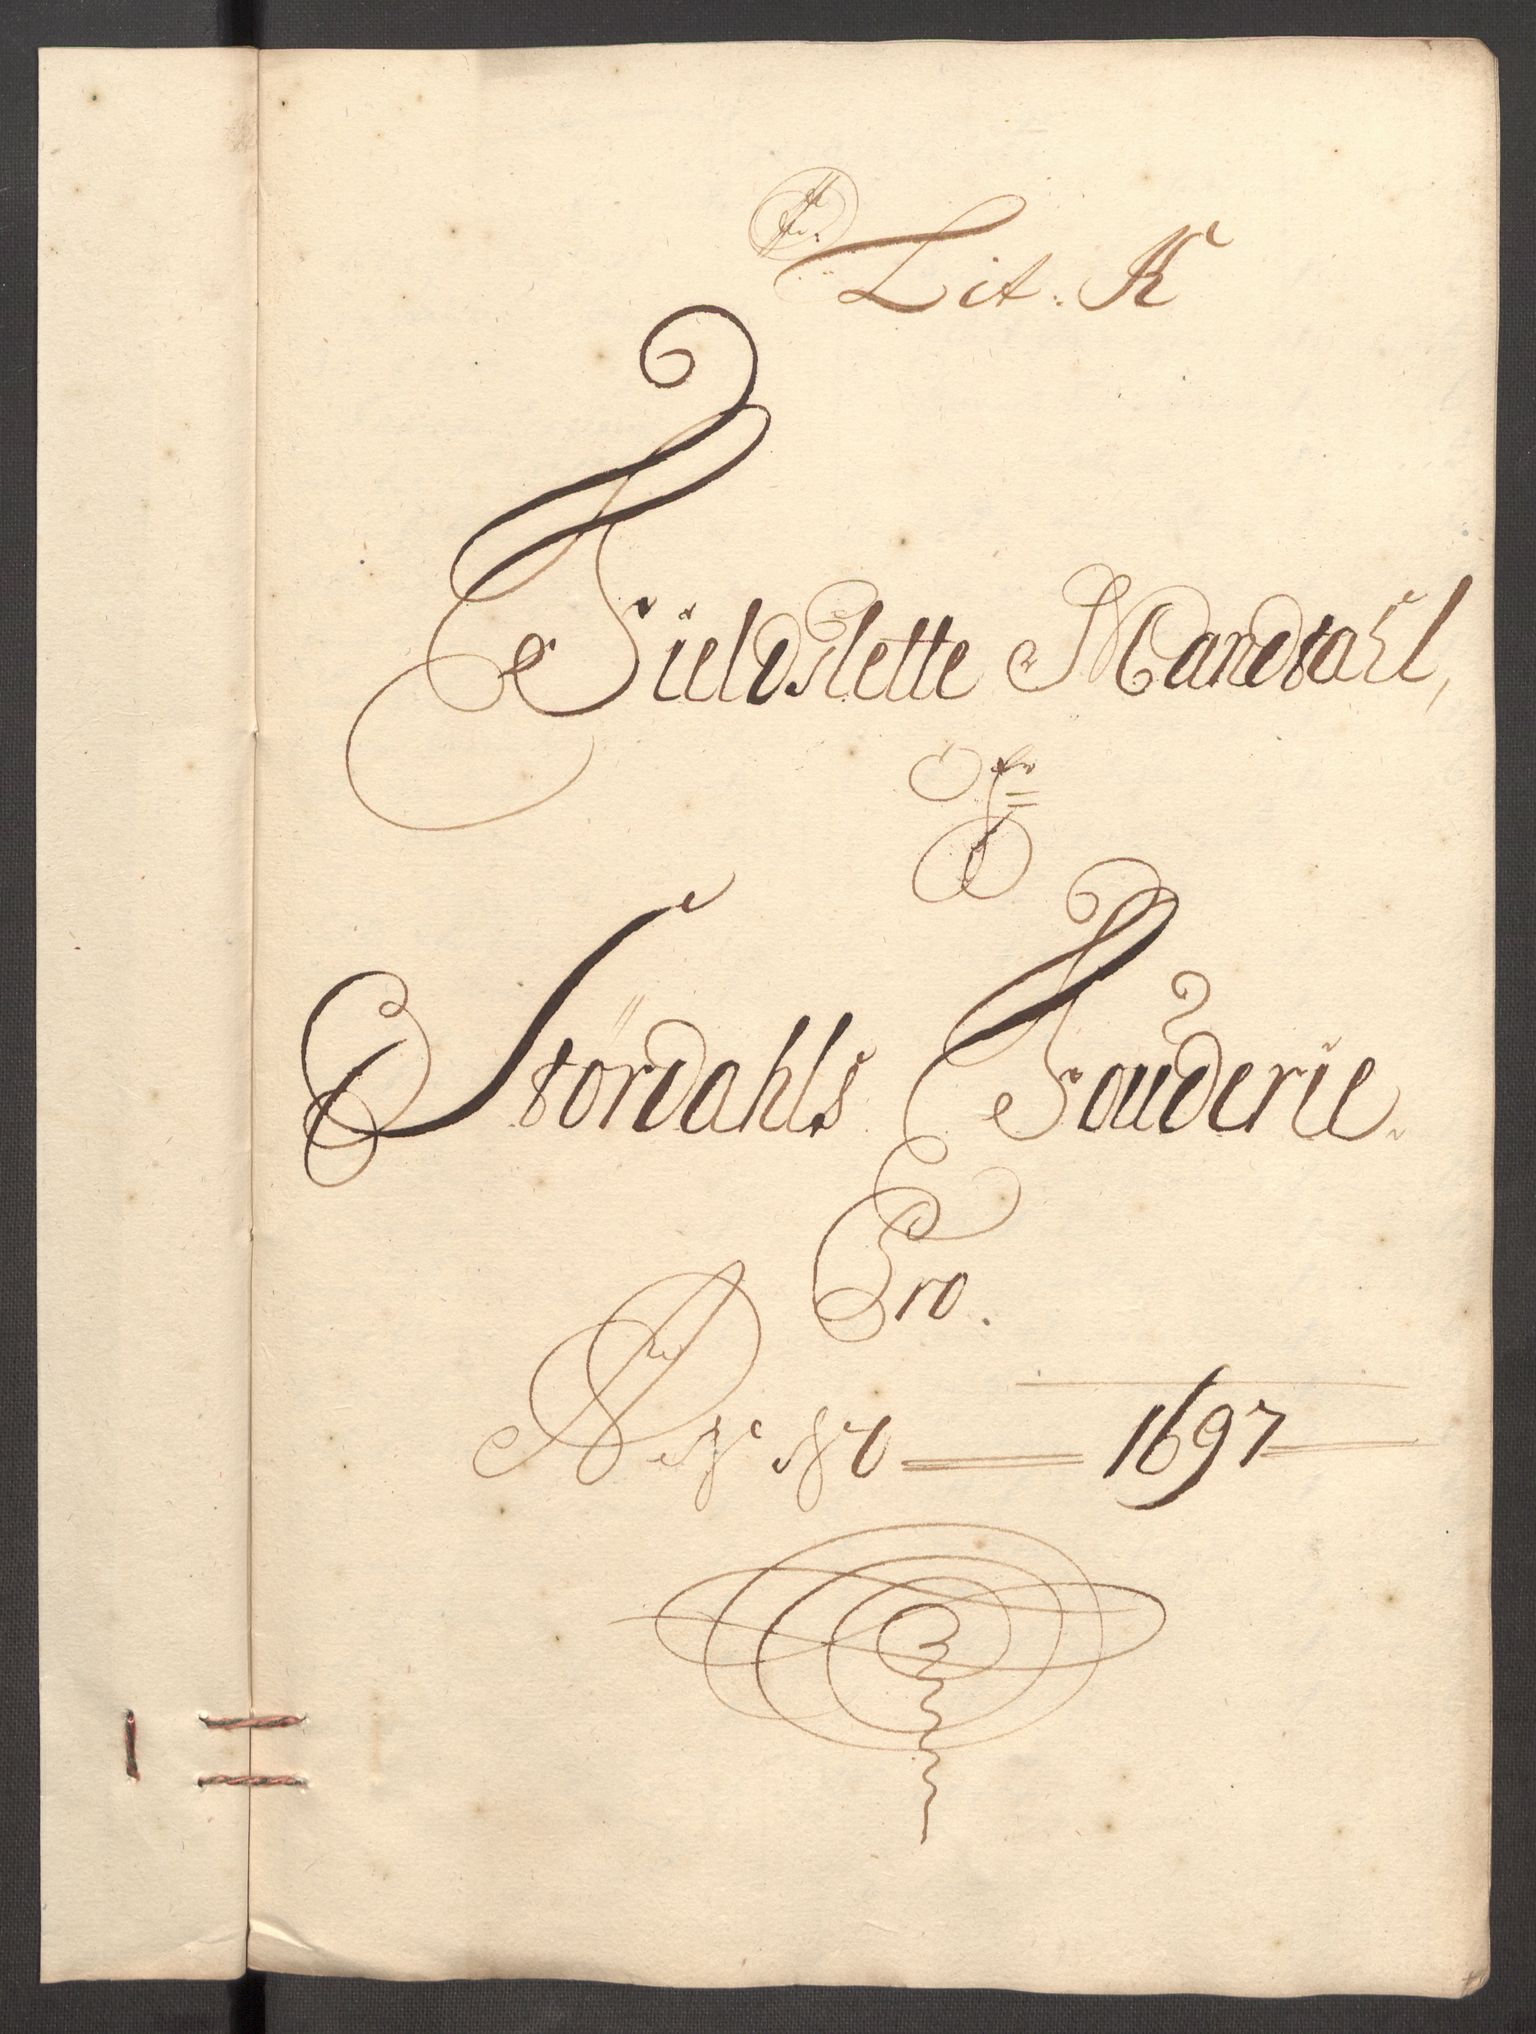 Lit. K
Fieldslette Mandtahl,
Af
Størdahls Fouderie.
Pro.
Anno 1697